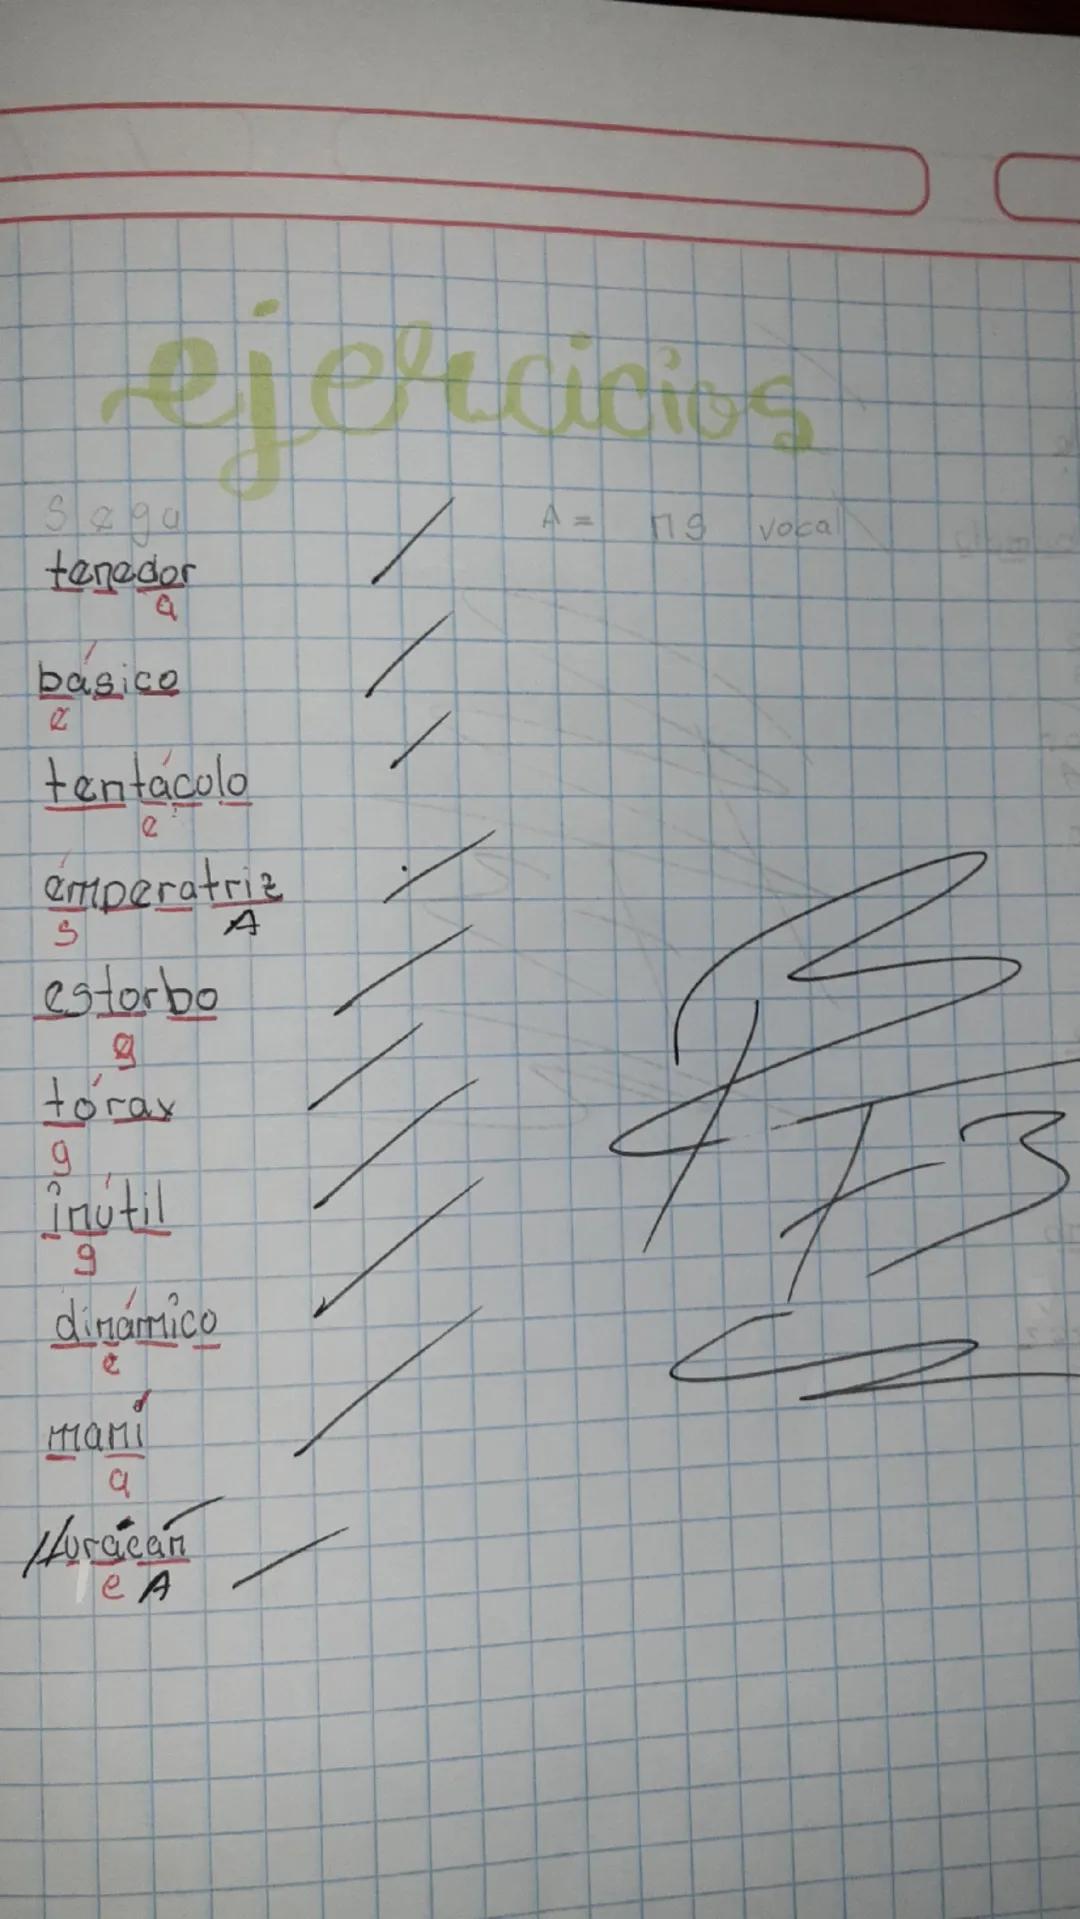 ejercicios
s e g a
A = n s vocal
tenedor
a
básico
e
tentáculo
e
émperatriz
s A
estorbo
g
tórax
g
inútil
g
dinámico
e
maní
a
Huracán
e A